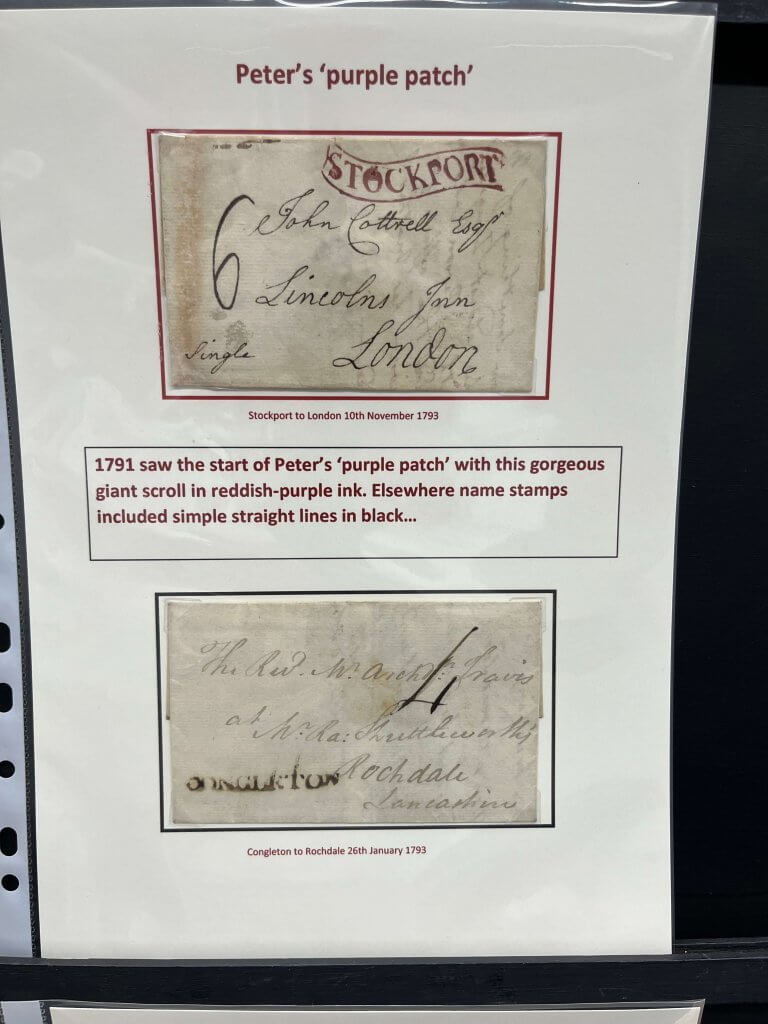 Peter’s ‘purple patch’
STOCKPORT
6
John Cottrell Esqr
Lincolns Inn
London
Single
Stockport to London 10th November 1793
1791 saw the start of Peter’s ‘purple patch’ with this gorgeous
giant scroll in reddish-purple ink. Elsewhere name stamps
included simple straight lines in black...
4
The Revd. Mr. Archd. Travis
at Mr. Ra: Shuttleworth's
CONGLETON
Rochdale
Lancashire
Congleton to Rochdale 26th January 1793